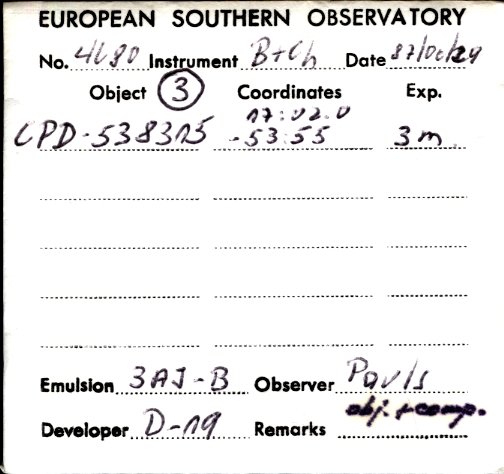 EUROPEAN SOUTHERN OBSERVATORY
No. 4680 Instrument B+Ch Date 87/Oct/29
Object 3 Coordinates Exp.
17:02.0
CPD-538315 -53:55 3m
Emulsion 3AJ-B Observer Pauls
obj. + comp.
Developer D-19 Remarks